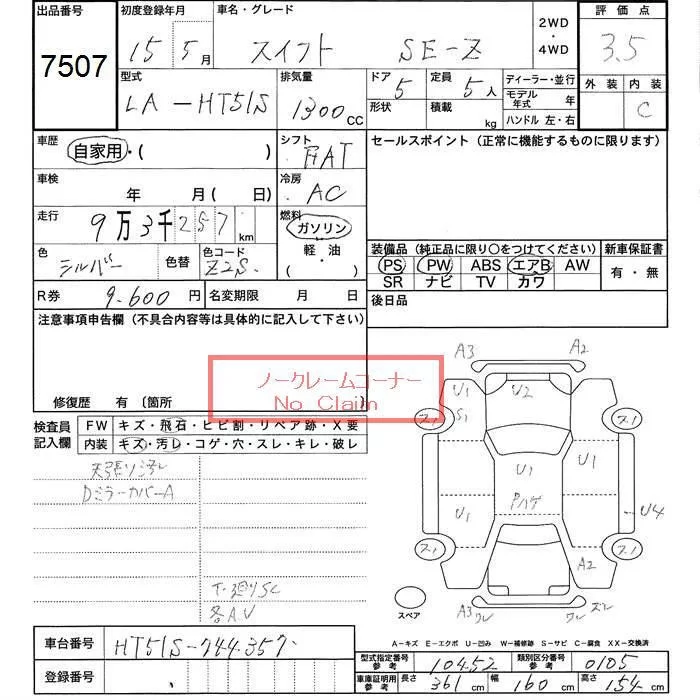 出品番号 初度登録年月 車名・グレード 2WD 評価点
7507 15 5月 スイフト SE-Z ・4WD 3.5
型式 排気量 ドア 定員 ディーラー・並行 外装 内装
LA-HT51S 1300CC 5 5人 モデル年式 年 C
形状 積載 kg ハンドル 左・右
車歴 シフト セールスポイント(正常に機能するものに限ります)
自家用・( ) FAT
車検 冷房
年 月(日) AC
走行 燃料
9万3千257km ガソリン
色 色コード 軽・油
シルバー 色替 Z2S ( ・ )
装備品(純正品に限り○をつけてください) 新車保証書
PS PW ABS エアB AW 有・無
SR ナビ TV カワ
R券 9.600円 名変期限 月 日 後日品
注意事項申告欄(不具合内容等は具体的に記入して下さい)
ノークレームコーナー
No Claim
修復歴 有(箇所 )
検査員記入欄 FW キズ・飛石・ヒビ割・リペア跡・X要
内装 キズ・汚レ・コゲ・穴・スレ・キレ・破レ
天張り汚レ
DミラーカバーA
下廻りSC
各AU
A3 A2
U1 U2
S1
ス1 ス1
U1 U1
U1 Pハゲ U4
ス1 ス1
A2
スペア A3 ワレ ワレ ズレ
A-キズ E-エクボ U-凹み W-補修跡 S-サビ C-腐食 XX-交換済
車台番号 HT51S-744357
登録番号
型式指定番号参考 10452 類別区分番号参考 0105
車庫証明用参考 長さ 361cm 幅 160cm 高さ 154cm